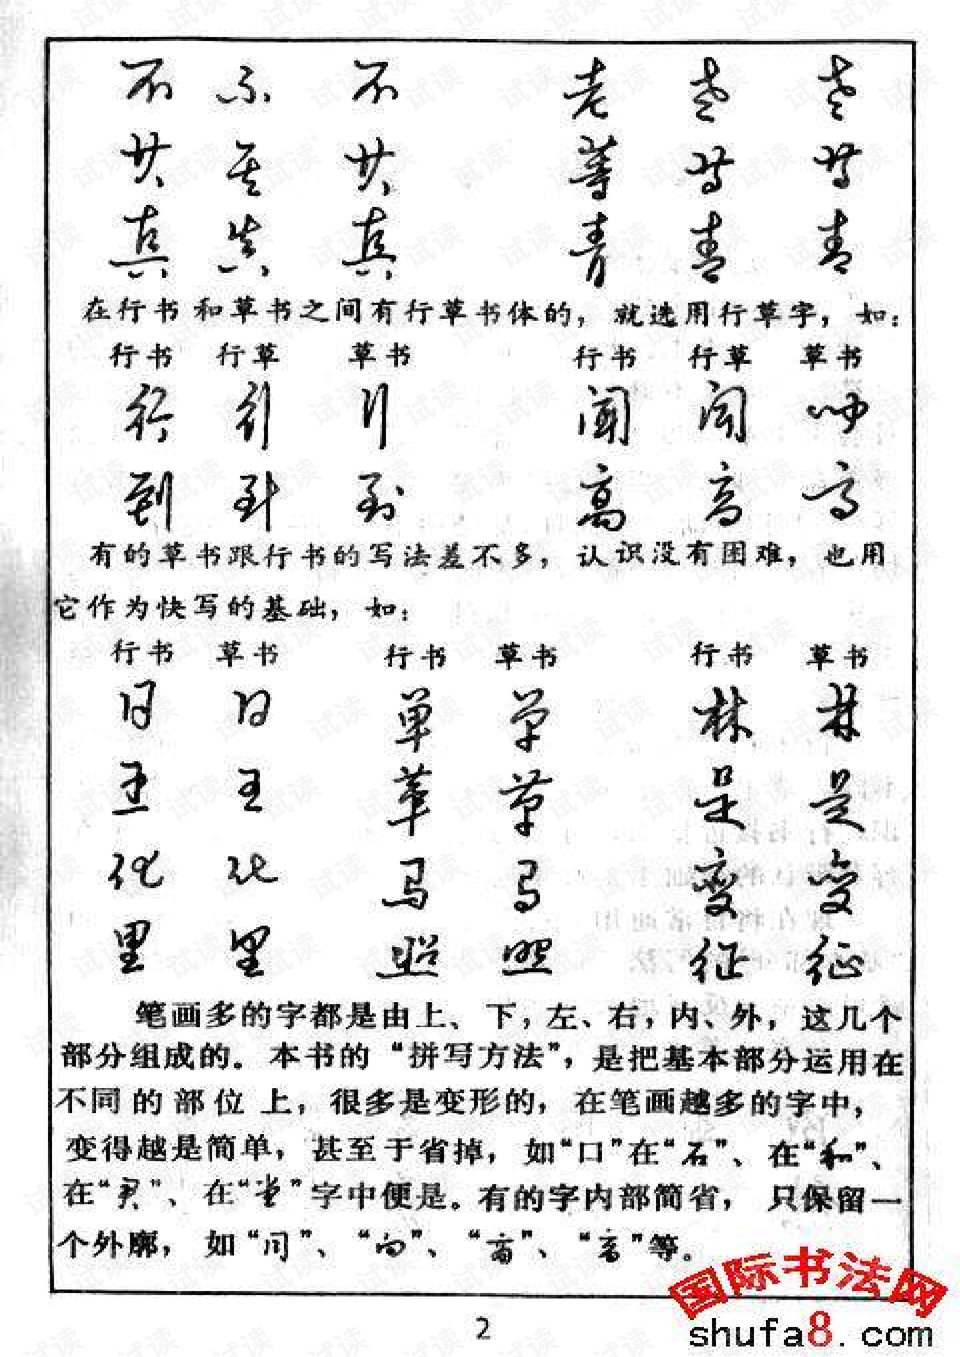 不 不 不 老 老 老
共 共 共 等 等 等
真 真 真 青 青 青
在行书和草书之间有行草书体的，就选用行草字，如：
行书 行草 草书 行书 行草 草书
行 行 行 闻 闻 闻
到 到 到 高 高 高
有的草书跟行书的写法差不多，认识没有困难，也用
它作为快写的基础，如：
行书 草书 行书 草书 行书 草书
日 日 单 单 林 林
王 王 草 草 是 是
化 化 马 马 变 变
里 里 照 照 征 征
笔画多的字都是由上、下，左、右，内、外，这几个
部分组成的。本书的“拼写方法”，是把基本部分运用在
不同的部位上，很多是变形的，在笔画越多的字中，
变得越是简单，甚至于省掉，如“口”在“石”、在“和”、
在“君”、在“堂”字中便是。有的字内部简省，只保留一
个外廓，如“问”、“向”、“高”、“高”等。
2
国际书法网
shufa8.com